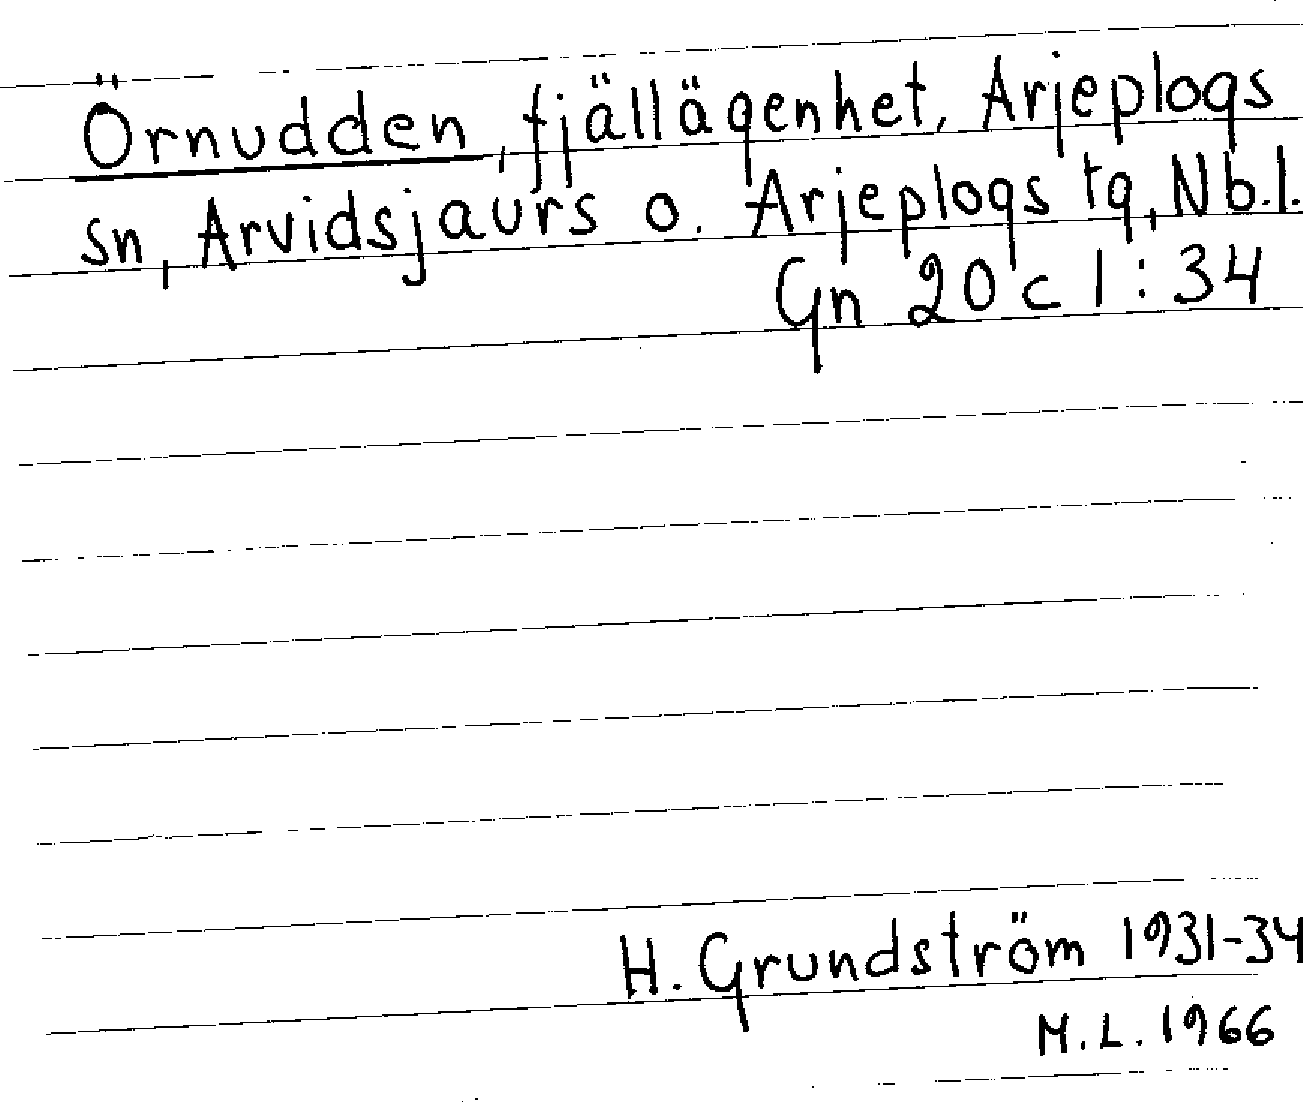 Örnudden, fjällägenhet, Arjeplogs
sn, Arvidsjaurs o. Arjeplogs tg, Nb.l.
Gn 20 c 1:34
H. Grundström 1931-34
M.L. 1966